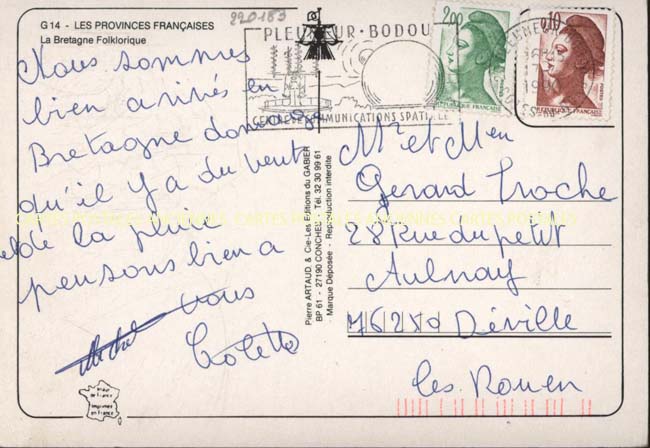 220183
G 14 - LES PROVINCES FRANÇAISES
La Bretagne Folklorique
PLEUMEUR-BODOU
CENTRE TELECOMMUNICATIONS SPATIALE
2,00
0,10
REPUBLIQUE FRANÇAISE
REPUBLIQUE FRANÇAISE
Nous sommes
bien arrivés en
Bretagne
qu'il y a du vent
de la pluie
pensons bien a
vous
Michel Colette
Pierre ARTAUD & Cie - Les Editions du GABIER
BP 61 - 27190 CONCHES - Tél. 32 30 99 61
Marque Déposée - Reproduction interdite
Mr et Men
Gerard Troche
28 Rue du petit
Aulnay
76250 Déville
les Rouen
CARTES POSTALES ANCIENNES
imprimée
en France